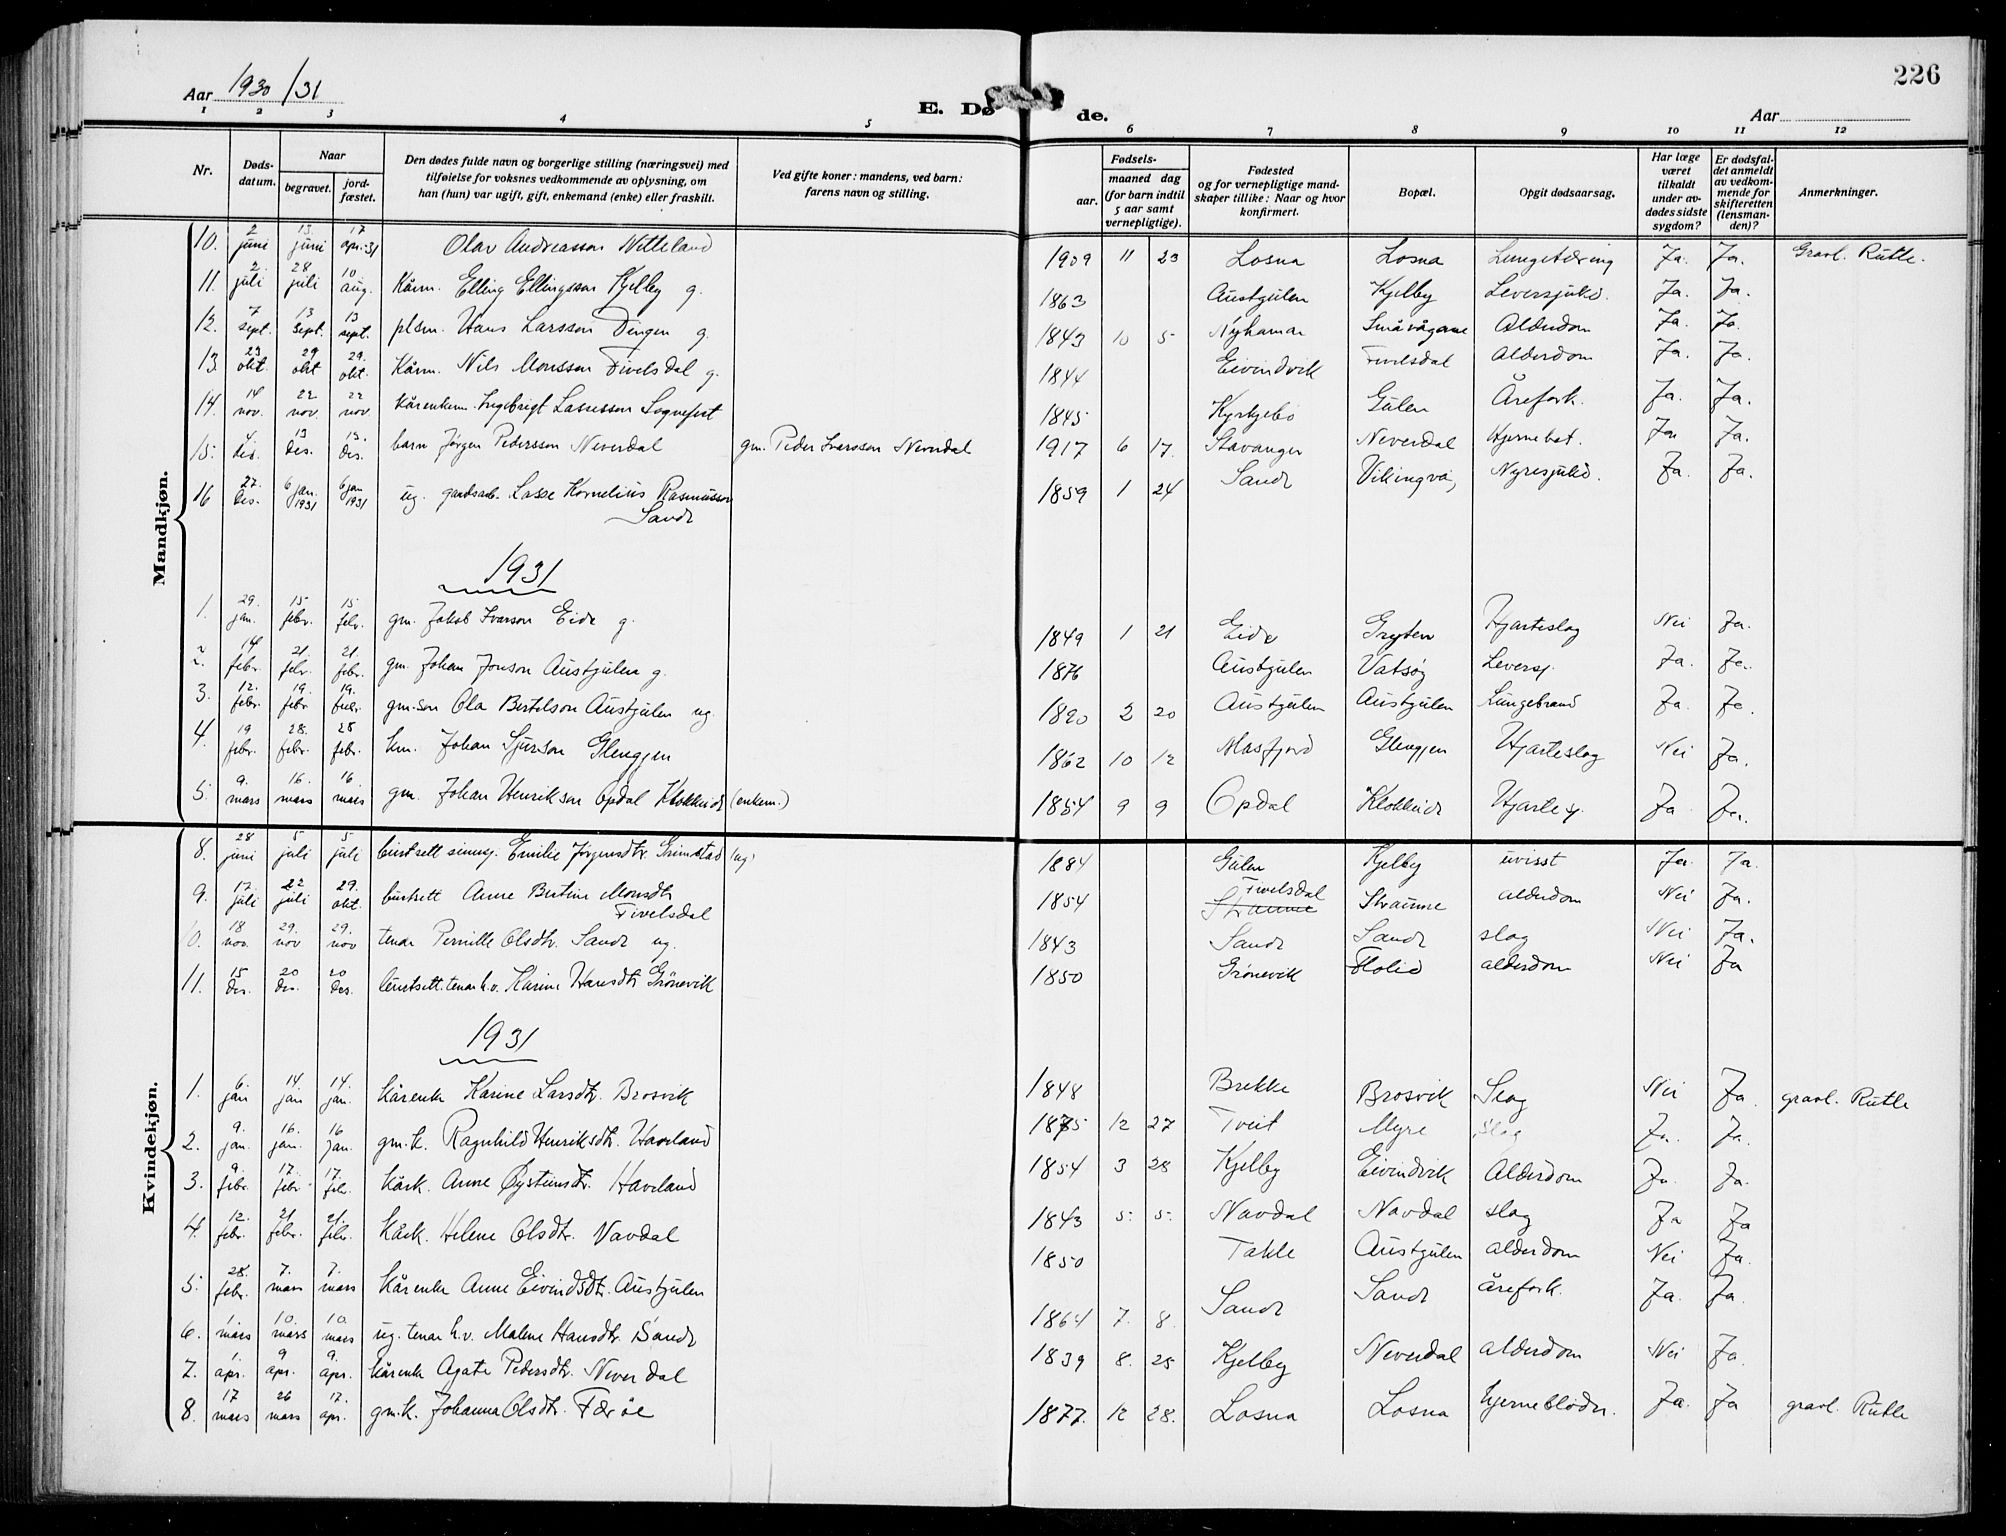 226
Aar 1930/31
E. Dø de.
Aar
1 2 3 4 5 6 7 8 9 10 11 12
Nr.
Døds-datum.
Naar
begravet.
jord-fæstet.
Den dødes fulde navn og borgerlige stilling (næringsvei) med
tilføielse for voksnes vedkommende av oplysning, om
han (hun) var ugift, gift, enkemand (enke) eller fraskilt.
Ved gifte koner: mandens, ved barn:
farens navn og stilling.
Fødsels-
aar.
maaned dag
(for barn indtil
5 aar samt
vernepligtige).
Fødested
og for vernepligtige mand-
skaper tillike: Naar og hvor
konfirmert.
Bopæl.
Opgit dødsaarsag.
Har læge
været
tilkaldt
under av-
dødes sidste
sygdom?
Er dødsfal-
det anmeldt
av vedkom-
mende for
skifteretten
(lensman-
den)?
Anmerkninger.
Mandkjøn.
10. 2 juni 13. juni 17 apr. 31 Olav Andreasson Nitteland 1909 11 23 Losna Losna Lungetæring Ja. Ja. Gravl. Rutle.
11. 2. juli 28 juli 10 aug. Kårm. Elling Ellingsson Kjelby g. 1863 Austgulen Kjelby Leversjukd. Ja. Ja.
12. 7 sept. 13 sept. 13 sept. plsm. Hans Larsson Dingen g. 1843 10 5 Nyhamar Småvågane Alderdom Ja. Ja.
13. 23 okt. 29 okt 29. okt. Kårm. Nils Monsson Fivelsdal g. 1844 Eivindvik Fivelsdal Alderdom Ja. Ja.
14. 14 nov. 22 nov. 22 nov. Kårenkem. Ingebrigt Lassesson Sognefest 1845 Kyrkjebø Gulen Årefork. Ja. Ja.
15. 4. des. 13 des. 13. des. barn Jørgen Pedersson Neverdal gm. Peder Ivarsson Neverdal 1917 6 17. Stavanger Neverdal Hjernebet. Ja Ja.
16 27. des. 6 jan. 1931 6 jan 1931 ug. gardsarb. Lasse Kornelius Rasmusson 1859 1 24 Sande Vikingvå, Nyresjukd. Ja. Ja.
Sande
1931
1. 29. jan. 15 febr. 15 febr. gm. Jakob Ivarson Eide g. 1849 1 21 Eide Gryten Hjarteslag Nei Ja.
2. 14 febr. 21. febr. 21. febr. gm. Johan Jonson Austgulen g. 1876 Austgulen Vatsøy Leversj. Ja. Ja.
3. 12. febr. 19. febr. 19. febr. gm.son Ola Bertelson Austgulen ug. 1890 2 20 Austgulen Austgulen Lungebrand Ja. Ja.
4. 19 febr. 28. febr. 28 febr. hm. Johan Sjurson Glengjen 1862 10 12 Masfjord Glengjen Hjarteslag Nei Ja.
5. 9. mars 16. mars 16 mars gm. Johan Henrikson Opdal Klokkeide (enkem.) 1854 9 9 Opdal Klokkeide Hjartesj. Ja Ja.
Kvindekjøn.
8. 28 juni 5 juli 5 juli burtsett sinnsj. Emilie Jørgensdtr. Grimstad (ug) 1884 Gulen Kjelby uvisst Ja. Ja.
9. 17. juli 22 juli 29. okt. burtsett Anne Bertine Monsdtr. 1854 Straume Fivelsdal Straume alderdom Nei Ja.
Fivelsdal
10. 18 nov. 29. nov 29. nov tenar Pernille Olsdtr. Sande ug. 1843 Sande Sande slag Nei Ja.
11. 15 des. 20 des. 20 des. burtsett. tenar h.v. Karine Hansdtr Grönevik 1850 Grönevik Flolid alderdom Nei Ja
1931
1. 6. jan 14. jan 14. jan. kårenke Karine Larsdtr. Brosvik 1848 Brekke Brosvik Slag Nei Ja. gravl. Rutle
2. 9. jan. 16. jan. 16 jan. gm.k. Ragnhild Henriksdtr. Haveland 1875 12 27 Tveit Myre Slag Ja. Ja.
3. 9. febr. 17. febr 17. febr. Kårk. Anne Øysteinsdtr. Haveland 1854 3 28 Kjelby Eivindvik Alderdom Ja. Ja.
4. 12. febr. 21 febr. 21. febr. Kårk. Helene Olsdtr. Navdal 1843 5. 5. Navdal Navdal slag Ja Ja
5. 28. febr. 7. mars 7. mars Kårenke Anne Eivindsdtr. Austgulen 1850 Takle Austgulen alderdom Nei Ja.
6. 1 mars 10. mars 10. mars ug. tenar h.v. Malene Hansdtr. Sande 1864 7. 8. Sande Sande årefork. Ja. Ja.
7. 1. apr. 9 apr. 9. apr. kårenke Agate Pedersdtr. Neverdal 1839 8. 25 Kjelby Neverdal alderdom Nei Ja.
8. 17 mars 26 mars 17. apr. gm.k. Johanna Olsdtr. Færøe 1877. 12 28. Losna Losna hjerneblødn. Ja. Ja gravl. Rutle